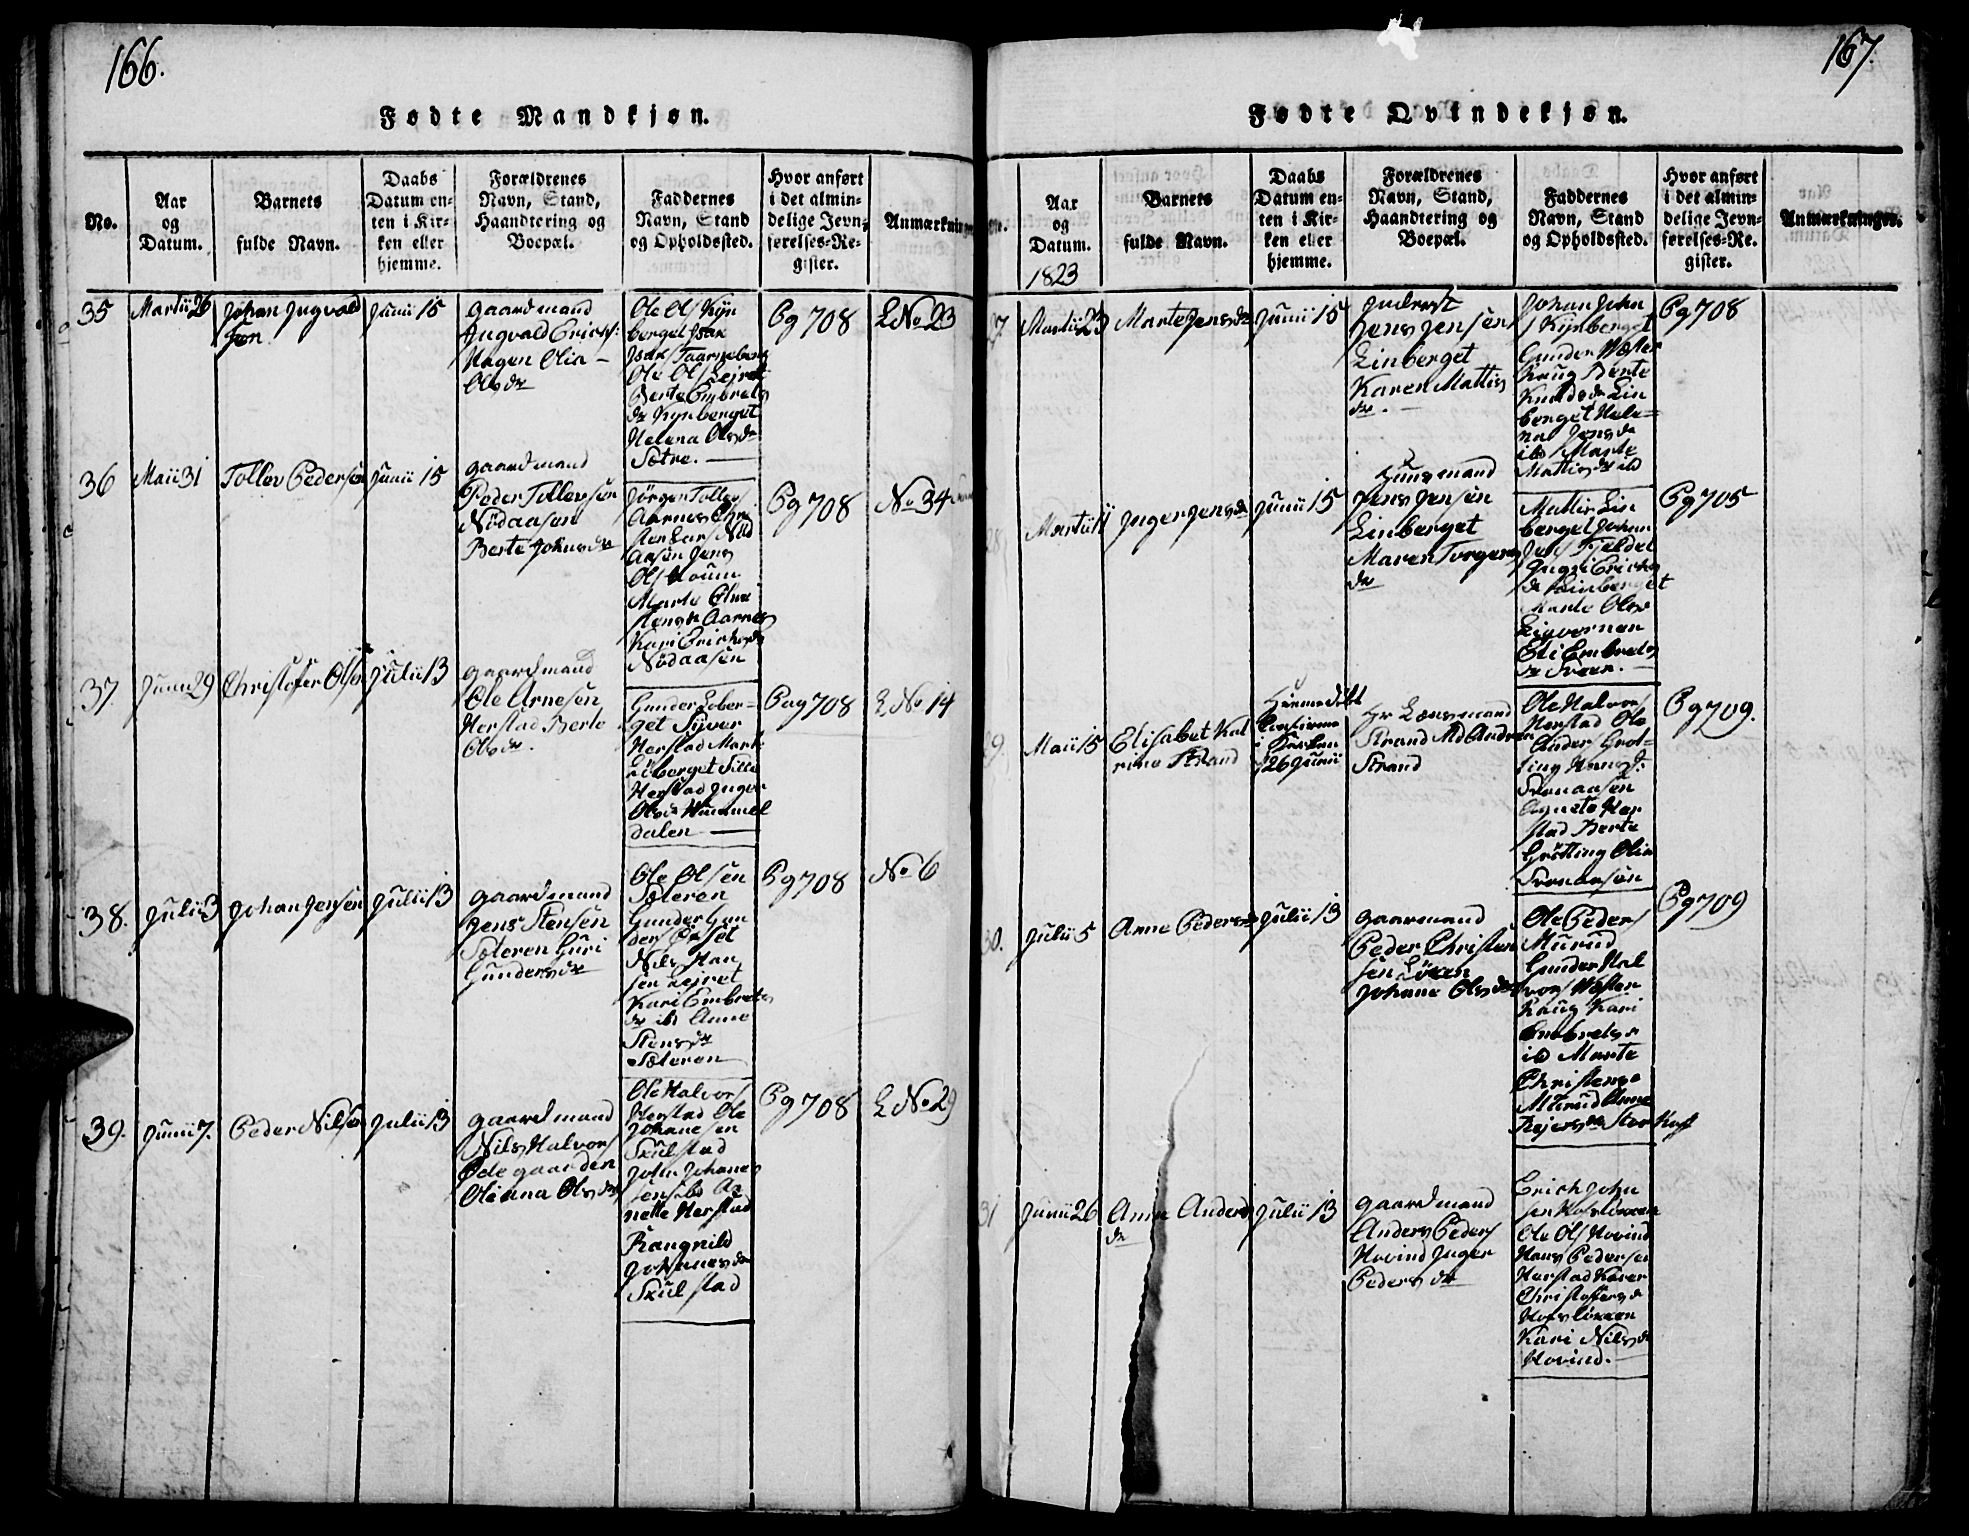 166.
Fødte Mandkjøn.
No.
Aar
og
Datum.
Barnets
fulde Navn.
Daabs
Datum en-
ten i Kir-
ken eller
hjemme.
Forældrenes
Navn, Stand,
Haandtering og
Boepæl.
Faddernes
Navn, Stand
og Opholdssted.
Hvor anført
i det almin-
delige Jevn-
førelses-Re-
gister.
Anmærkninger
35
Martii 26
Johan Ingvald
sen
Junii 15
gaardmand
Ingvald Erics:
Hagen Olia -
Olsdr
Ole Ols Kyn
berget Isak
Isaks Taarneberg
Ole Ols Lejret
Berte Embrets
dr Kynberget
Helena Olsdr
Sætre.
Pg 708
L No 23
36
Maii 31
Tollev Pedersen
Junii 15
gaardmand
Peder Tollevsen
Nödaasen
Berte Johnsdr
Jörgen Tollevs
Aarnes
Lars Nöd
aasen Jens
Ols
Marte
Aarnes
Kari Erichsdr
Nödaasen
Pg 708
No 34
37
Junii 29
Christofer Olsen
Julii 13
gaardmand
Ole Arnesen
Herstad Berte
Olsdr.
Gunder Lober-
get Syver
Herstad Mart
Löberget Sille
Herstad Inger
Olsdr Hummel
dalen
Pag 708
L No 14
38.
Julii 3
Johan Jensen
Julii 13
gaardmand
Jens Stensen
Sæteren Guri
Gundersdr
Ole Olsen
Sæteren
Gunder Gun
ders
Nils Han
sen Lejret
Kari Embrets
dr ibd Anne
Stensdr
Sæteren
Pg 708
No 6
39.
Junii 7.
Peder Nilsen
Julii 13
gaardmand
Nils Halvors
Ödegaarden
Olianna Olsdr
Ole Halvors
Herstad Ole
Johanesen
Skulstad
John Johane
sen ibd Ag
nette Herstad
Rangnild
Johanesdr
Skulstad
Pg 708
L No 29
167.
Fødte Qvindekjøn.
No.
Aar
og
Datum.
1823
Barnets
fulde Navn.
Daabs
Datum en-
ten i Kir-
ken eller
hjemme.
Forældrenes
Navn, Stand,
Haandtering og
Boepæl.
Faddernes
Navn, Stand
og Opholdssted.
Hvor anført
i det almin-
delige Jevn-
førelses-Re-
gister.
Anmærkninger.
27.
Martii 23
Marte Jensdr
Junii 15
Inderst
Jens Jensen
Linberget
Karen Mattis
dr.
Johan John
s Kynberget
Gunder Wæster
haug Berte
Knudsdr Lin
berget Hele-
na Jensdr
ibd Marte
Mattisdr ibd
Pg 708
28
Martii 11
Inger Jensdr
Junii 15
Huusmand
Jens Jensen
Linberget
Maren Torgers
dr
Mattis Lin
berget Johan
Jens Fjeldet
Ingri Erichs
dr Linberget
Marte Olsdr
Ligvernan
Eli Embrets
dr Sveen.
Pg 705
29.
Maii 15
Elisabet Kat
rine Strand
Hjemmedöbt
i Kirken
26 Junii
Hr Lænsmand
Strand Md Andrea
Strand
Ole Halvors
Herstad Ole
Anders Gröt-
ting Hans
Svenaasen
Agneta Her
stad Berte
Grötting Olia
Svenaasen
Pg 709.
30.
Julii 5
Anne Pedersdr
Julii 13
gaarmand
Peder Christen
sen Löken
Johane Olsdr
Ole Peders
Murud
Gunder Hal
vors Wæster
haug Kari
Embretsdr
ibd Marte
Christensdr
Murud Anne
Rejersdr
Pg 709
31
Junii 26
Anne Anders
dr
Julii 13
gaardmand
Anders Peders
Hovind Inger
Pedersdr
Erich John
sen Hovslökken
Ole Ols Hovind
Hans Pedersen
Herstad Karen
Christoffersdr
Hovslökken
Kari Nilsdr
Hovind.